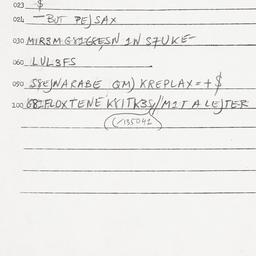 023 $
024 — BUT PEJSAX
030 MIR3M G8IGKESN IN S7UKE
060 LUL3FS
090 S8EJNARABE QM) KREPLAX = + $
100 G8IFLOXTENE K8ITK3S//M1T A LEJTER
(✓135041)